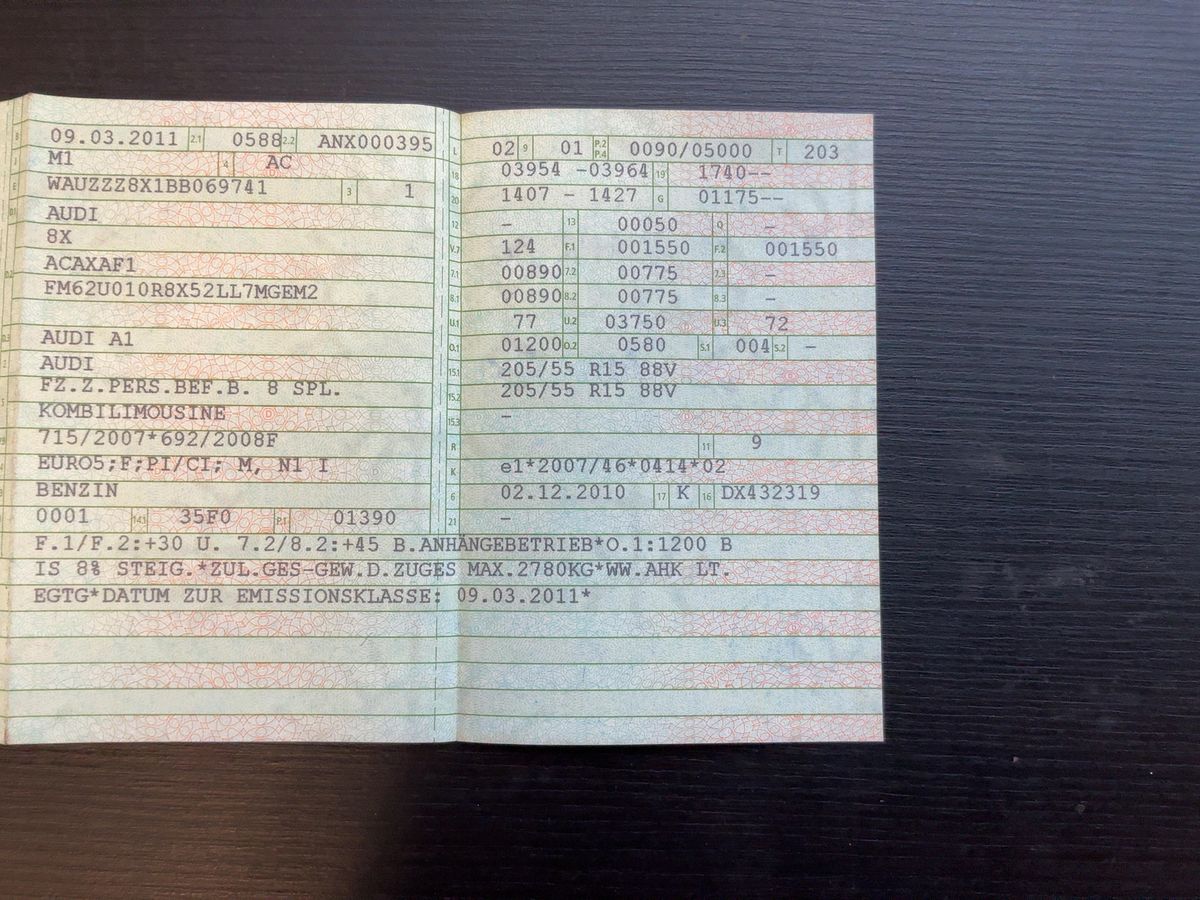 B 09.03.2011 2.1 0588 2.2 ANX000395
J M1 4 AC
E WAUZZZ8X1BB069741 3 1
D.1 AUDI
8X
D.2 ACAXAF1
FM62U010R8X52LL7MGEM2
D.3 AUDI A1
AUDI
5 FZ.Z.PERS.BEF.B. 8 SPL.
KOMBILIMOUSINE
V.9 715/2007*692/2008F
14 EURO5;F;PI/CI; M, N1 I
P.3 BENZIN
0001 14.1 35F0 P.1 01390
L 02 9 01 P.2 P.4 0090/05000 T 203
18 03954 -03964 19 1740--
20 1407 - 1427 G 01175--
12 - 13 00050 Q -
V.7 124 F.1 001550 F.2 001550
7.1 00890 7.2 00775 7.3 -
8.1 00890 8.2 00775 8.3 -
U.1 77 U.2 03750 U.3 72
O.1 01200 O.2 0580 S.1 004 S.2 -
15.1 205/55 R15 88V
15.2 205/55 R15 88V
15.3 -
R 11 9
K e1*2007/46*0414*02
6 02.12.2010 17 K 16 DX432319
21 -
F.1/F.2:+30 U. 7.2/8.2:+45 B.ANHÄNGEBETRIEB*O.1:1200 B
IS 8% STEIG.*ZUL.GES-GEW.D.ZUGES MAX.2780KG*WW.AHK LT.
EGTG*DATUM ZUR EMISSIONSKLASSE: 09.03.2011*